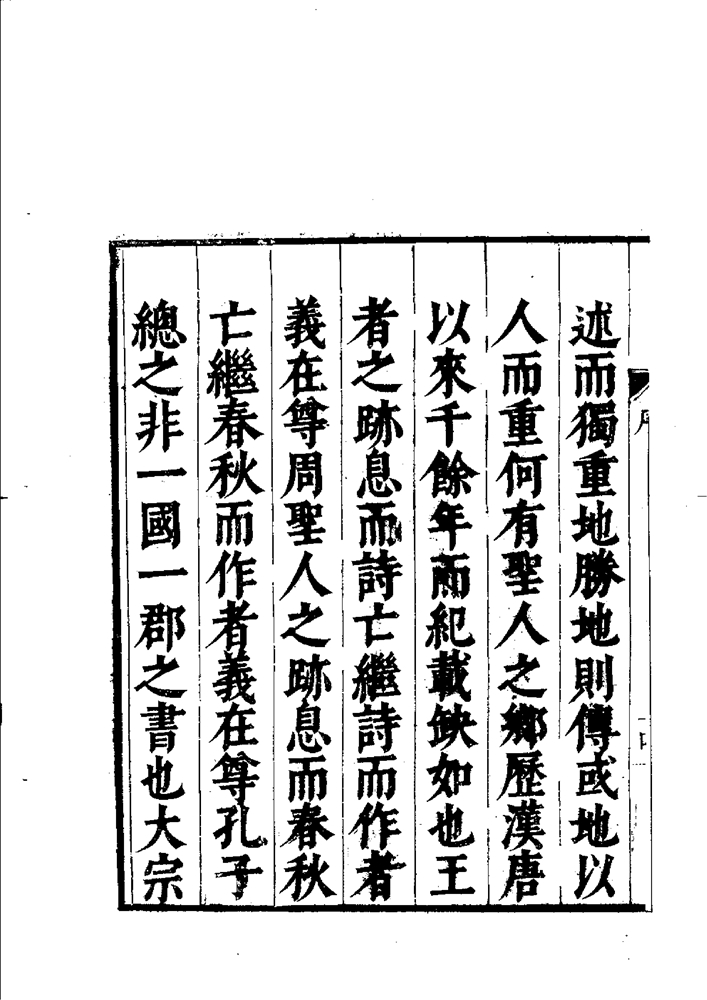 述而獨重地勝地則傳或地以
人而重何有聖人之鄉歷漢唐
以來千餘年而紀載缺如也王
者之跡息而詩亡繼詩而作者
義在尊周聖人之跡息而春秋
亡繼春秋而作者義在尊孔子
總之非一國一郡之書也大宗